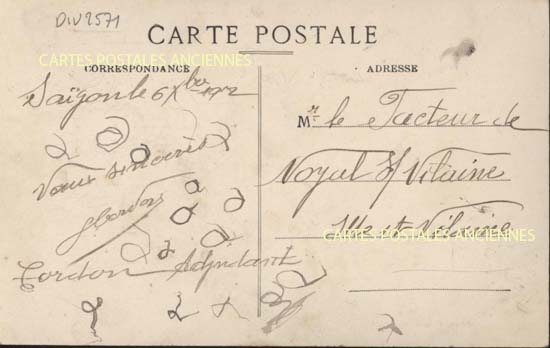 DIV2571
CARTE POSTALE
CARTES POSTALES ANCIENNES
CORRESPONDANCE
ADRESSE
Saïgon le 6 Xbre
Mr le Facteur de
Vœux sincères
Noyal s/ Vilaine
Ille et Vilaine
CARTES POSTALES ANCIENNES
Cordon Adjudant